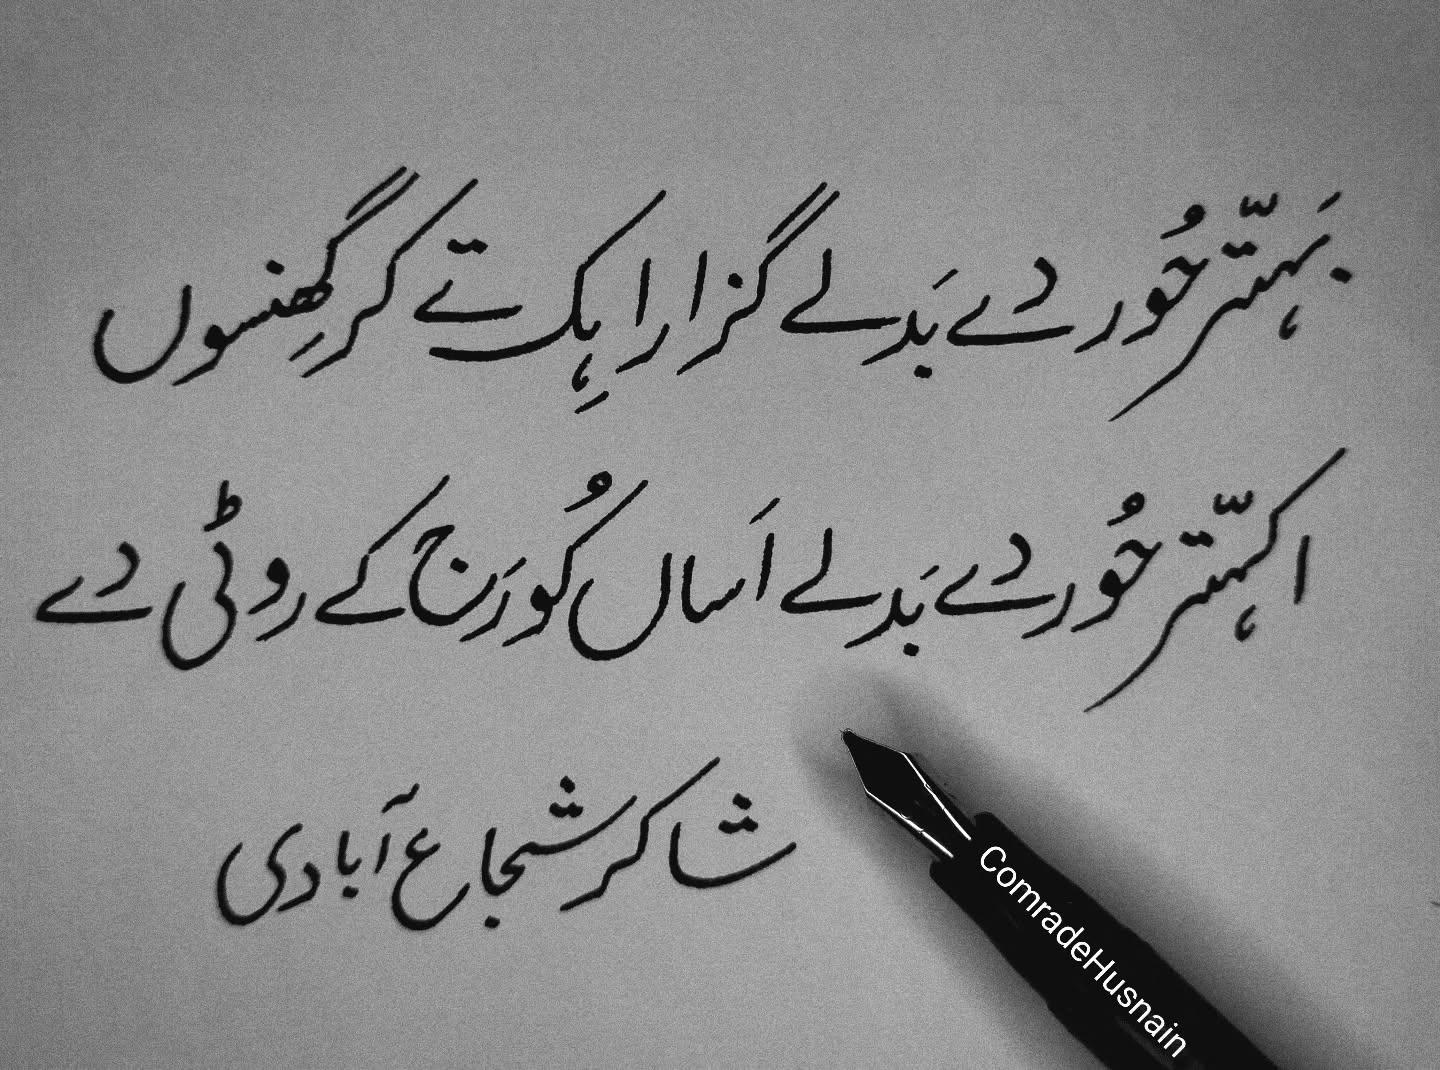 بَہتّر حُور دے بَدلے گزارا ہِک تے کر گھِنسوں
اکہتّر حُور دے بَدلے اَساں کُوں رَج کے روٹی دے
شاکر شجاع آبادی
ComradeHusnain